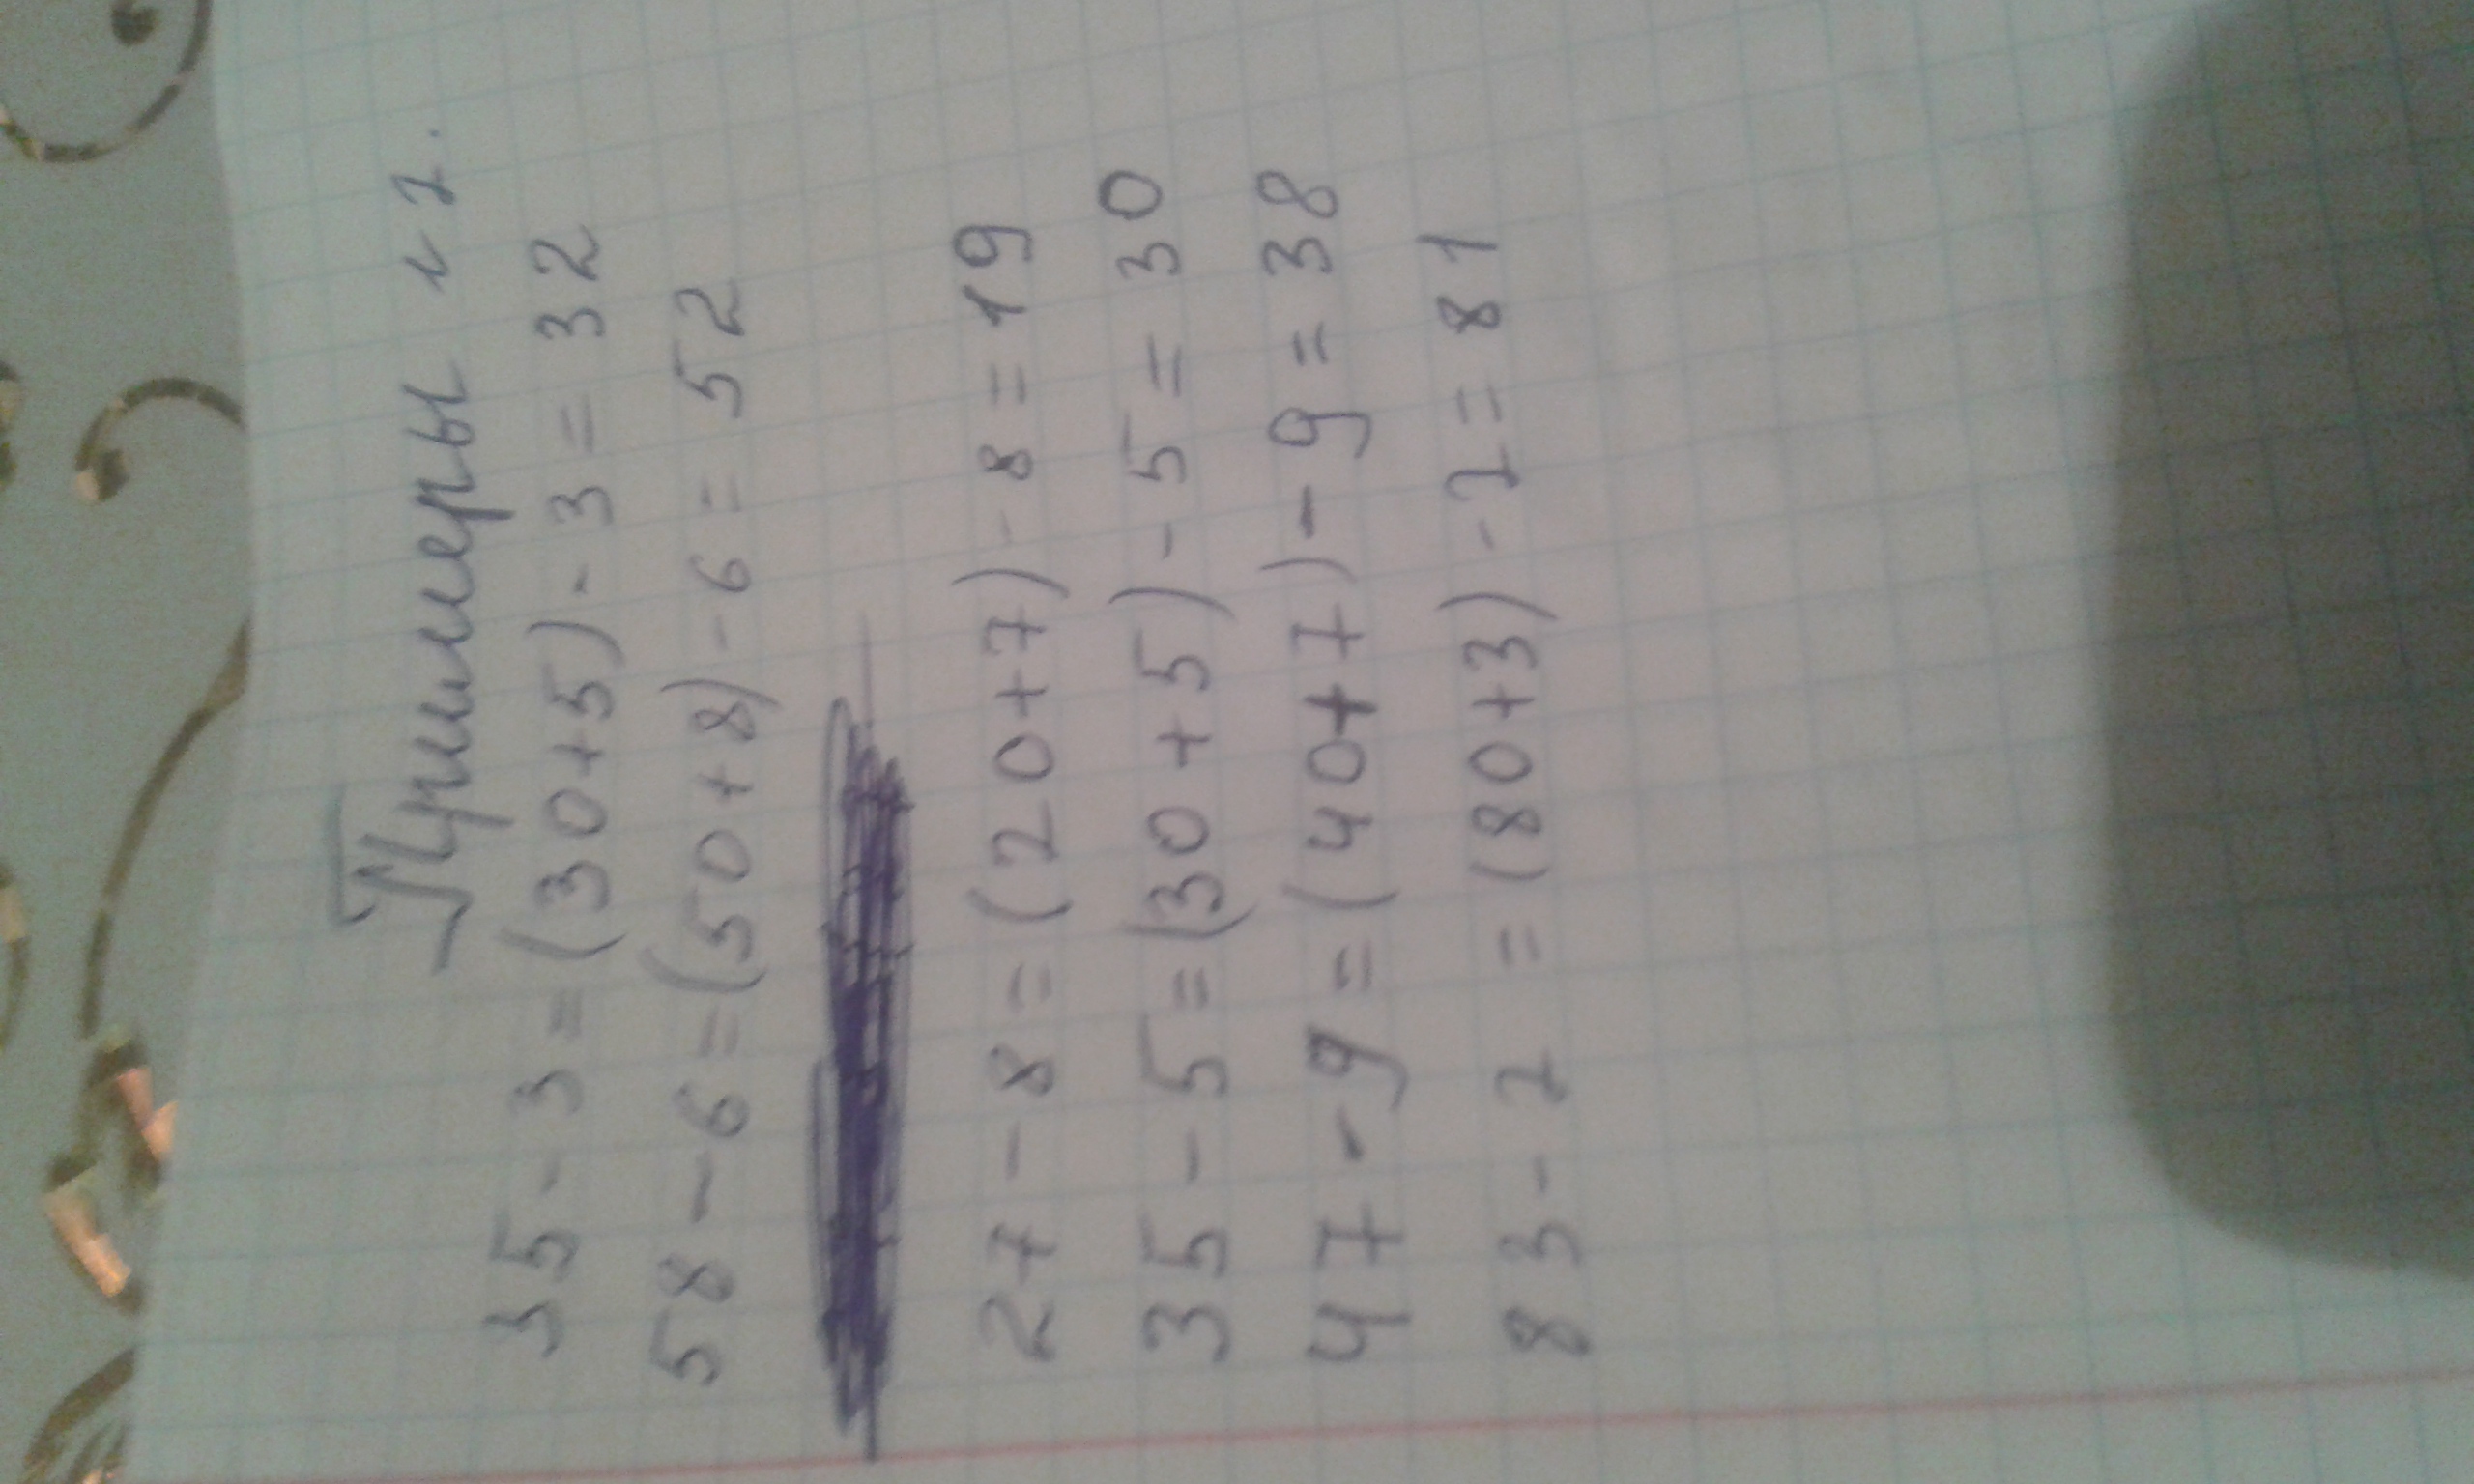 Примеры
35-3=(30+5)-3=32
58-6=(50+8)-6=52
27-8=(20+7)-8=19
35-5=(30+5)-5=30
47-9=(40+7)-9=38
83-2=(80+3)-2=81